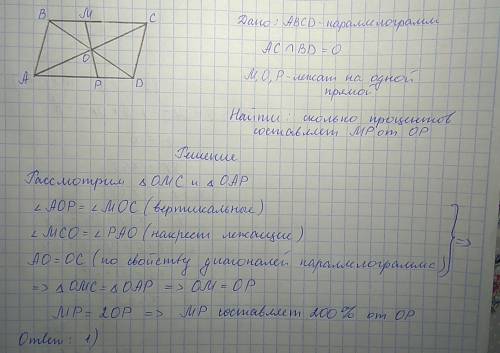 B M C
O
A P D
Дано: ABCD - параллелограмм
AC ∩ BD = O
M, O, P - лежат на одной
прямой
Найти: сколько процентов
составляет MP от OP
Решение
Рассмотрим △OMC и △OAP
∠AOP = ∠MOC (вертикальные)
∠MCO = ∠PAO (накрест лежащие)
AO = OC (по свойству диагоналей параллелограммс) =>
=> △OMC = △OAP => OM = OP
MP = 2OP => MP составляет 200% от OP
Ответ: 1)